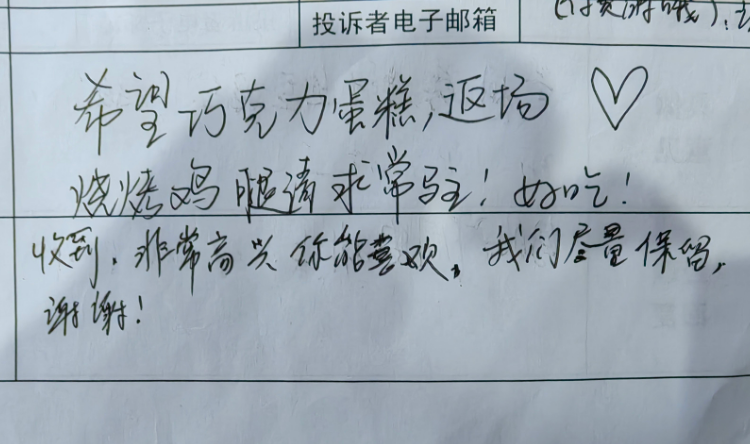 投诉者电子邮箱
希望巧克力蛋糕,返场 ♡
烧烤鸡腿请求常驻!好吃!
收到,非常高兴你能喜欢,我们尽量保留,
谢谢!